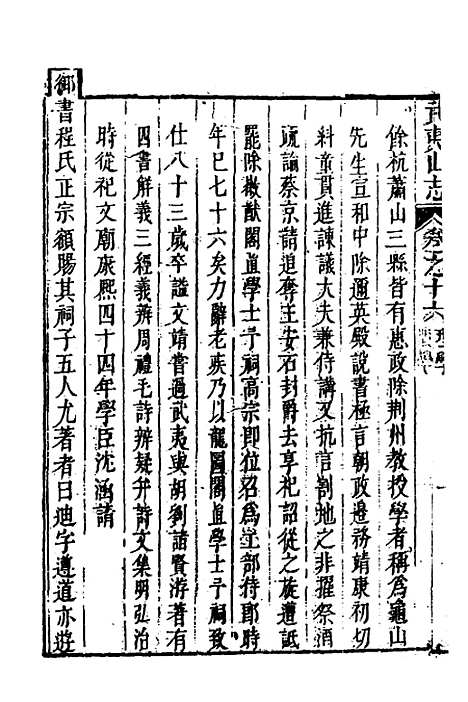 武夷山志 卷之十六 理學
餘杭蕭山三縣皆有惠政除荆州教授學者稱爲龜山
先生宣和中除邇英殿說書極言朝政邊務靖康初切
科童貫進諫議大夫兼侍講又抗言割地之非擢祭酒
疏論蔡京請追奪王安石封爵去享祀詔從之旋遭詆
罷除徽猷閣直學士予祠高宗即位召爲工部侍郎時
年已七十六矣力辭老疾乃以龍圖閣直學士予祠致
仕八十三歲卒諡文靖嘗過武夷與胡劉諸賢游著有
四書解義三經義辨周禮毛詩辨疑幷詩文集明弘治
時從祀文廟康熙四十四年學臣沈涵請
御書程氏正宗額賜其祠子五人九著者曰迪字遵道亦遊